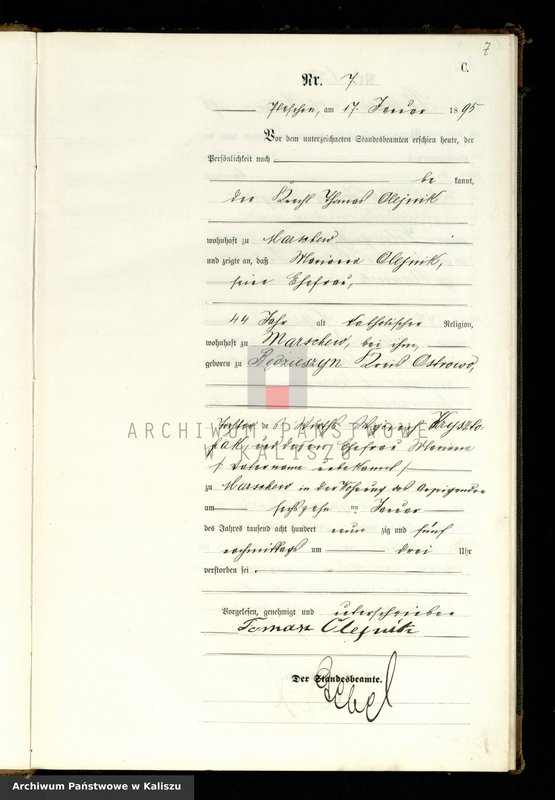 7
C.
Nr. 7.
Pleschen, am 17. Januar 1895
Vor dem unterzeichneten Standesbeamten erschien heute, der
Persönlichkeit nach
be kannt,
der Knecht Thomas Olejnik
wohnhaft zu Marschew
und zeigte an, daß Marianna Olejnik,
seine Ehefrau,
44 Jahr alt katholischer Religion,
wohnhaft zu Marschew, bei ihm,
geboren zu Będzieszyn Kreis Ostrowo,
Tochter des Knechts Kryszto-
fak und dessen Ehefrau Marianna
/ Vatername unbekannt /
ARCHIWUM PAŃSTWOWE
W KALISZU
zu Marschew in der Wohnung des Anzeigenden
am sechszehn ten Januar
des Jahres tausend acht hundert neun zig und fünf
nachmittags um drei Uhr
verstorben sei.
Vorgelesen, genehmigt und unterschrieben
Tomasz Olejnik
Der Standesbeamte.
Archiwum Państwowe w Kaliszu